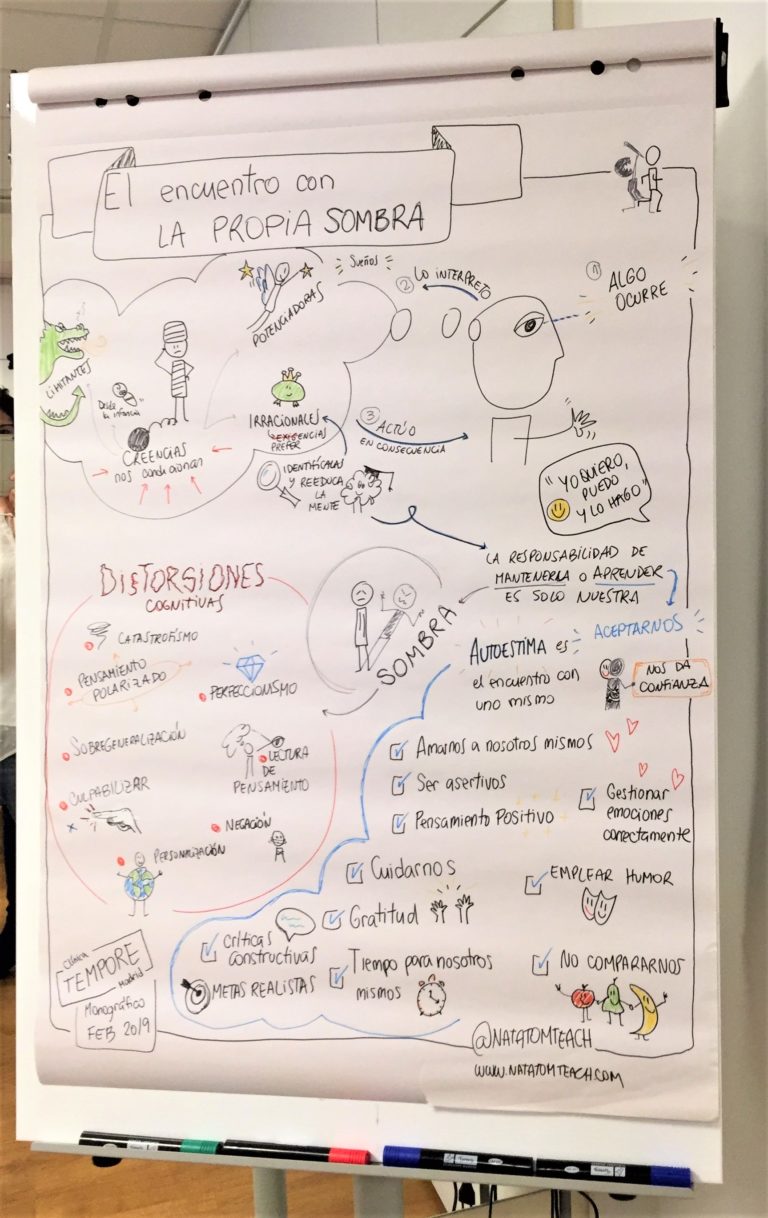 El encuentro con
LA PROPIA SOMBRA
LIMITANTES
POTENCIADORAS
Sueños
Desde
la infancia
CREENCIAS
nos condicionan
IRRACIONALES
EXIGENCIAS
PREFER
IDENTIFÍCALAS
Y REEDUCA
LA
MENTE
1 ALGO
OCURRE
2 LO INTERPRETO
3 ACTÚO
EN CONSECUENCIA
"YO QUIERO,
PUEDO
Y LO HAGO"
LA RESPONSABILIDAD DE
MANTENERLA O APRENDER
ES SOLO NUESTRA
SOMBRA
DISTORSIONES
COGNITIVAS
CATASTROFISMO
PENSAMIENTO
POLARIZADO
PERFECCIONISMO
SOBREGENERALIZACIÓN
LECTURA
DE
PENSAMIENTO
CULPABILIZAR
NEGACIÓN
PERSONALIZACIÓN
AUTOESTIMA es ACEPTARNOS
el encuentro con
uno mismo
NOS DA
CONFIANZA
Amarnos a nosotros mismos
Ser asertivos
Pensamiento Positivo
Gestionar
emociones
correctamente
Cuidarnos
EMPLEAR HUMOR
Gratitud
Críticas
constructivas
METAS REALISTAS
Tiempo para nosotros
mismos
NO COMPARARNOS
Clínica
TEMPORE
Madrid
Monográfico
FEB 2019
@NATATOMTEACH
WWW.NATATOMTEACH.COM